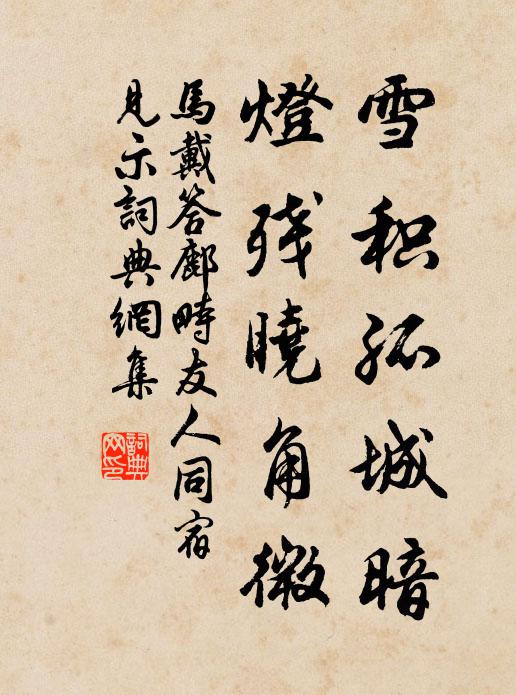 雪积孤城暗
燈残曉角微
馬戴答鄜畤友人同宿
見示詞典網集
詞典
网印